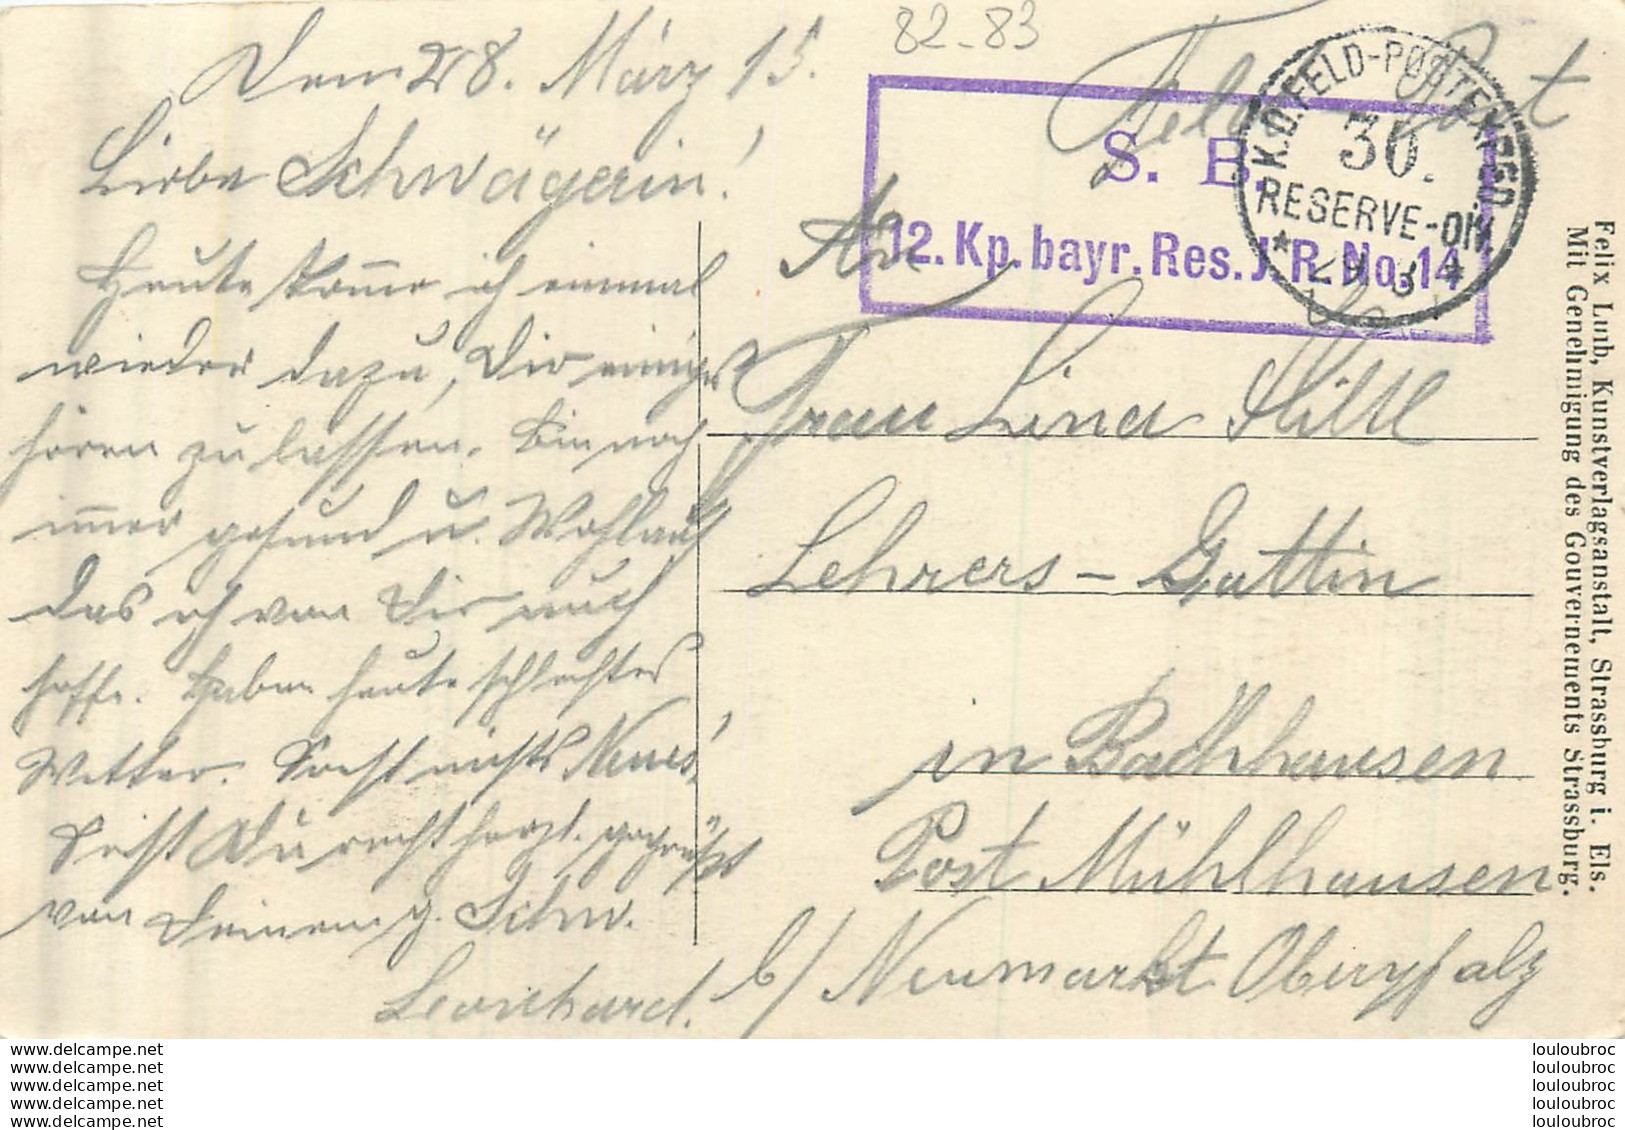 82-83
Den 28. März 15.
Liebe Schwägerin!
Heute komme ich einmal
wieder dazu, Dir einiges
hören zu lassen. Bin noch
immer gesund u. Wohlauf
das ich von Dir auch
hoffe. Haben heute schlechtes
Wetter. Sonst nichts Neues!
Seist Du recht herzl. gegrüßt
von Deinem g. Schw.
Leonhard.
Feld-Post
S. B.
12. Kp. bayr. Res. J. R. No. 14
K.D. FELD-POSTEXPED.
30.
RESERVE-DIV.
An
Frau Lina
Lehrers-Gattin
in Bachhausen
Post Mühlhausen
b/ Neumarkt Oberpfalz
Felix Luib, Kunstverlagsanstalt, Strassburg i. Els.
Mit Genehmigung des Gouvernements Strassburg.
www.delcampe.net
www.delcampe.net
www.delcampe.net
www.delcampe.net
www.delcampe.net
louloubroc
louloubroc
louloubroc
louloubroc
louloubroc